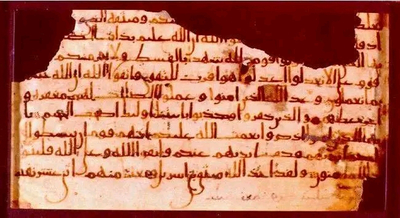 كم وميثقه الذي
الله ان الله عليم بذات
قومين لله شهدا بالقسط ولا يجرمنكم
قوم الا تعدلوا اعدلوا هو اقرب للتقوى واتقوا الله ان الله
بما تعملون وعد الله الذين امنوا وعملوا الصلحت لهم مغفره و
عظيم والذين كفروا وكذبوا بايتنا اولئك اصحب الجحيم يا
امنوا اذكروا نعمت الله عليكم اذ هم قوم ان يبسطوا
ايديهم فكف ايديهم عنكم واتقوا الله وعلى الله فليتو
المومنون ولقد اخذ الله ميثق بني اسريل وبعثنا منهم اثني عشر نقيبا